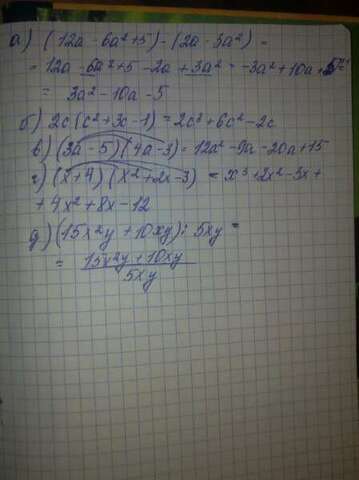 а) (12a - 6a² + 5) - (2a - 3a²) =
= 12a - 6a² + 5 - 2a + 3a² = -3a² + 10a + 5 =
= 3a² - 10a - 5
б) 2c (c² + 3c - 1) = 2c³ + 6c² - 2c
в) (3a - 5) (4a - 3) = 12a² - 9a - 20a + 15
г) (x + 4) (x² + 2x - 3) = x³ + 2x² - 3x +
+ 4x² + 8x - 12
д) (15x²y + 10xy) : 5xy =
= 15x²y + 10xy
5xy